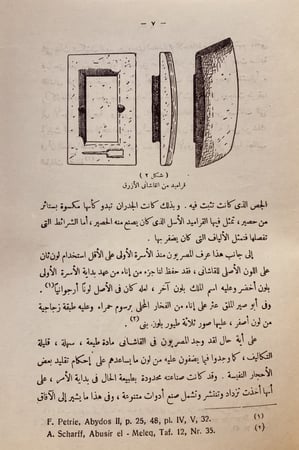 — ٧ —
( شكل ٢ )
قراميد من القاشانى الأزرق
الجص الذى كانت تثبت فيه . وبذلك كانت الجدران تبدو كأنها مكسوة بستائر
من حصير ، تمثل فيها القراميد الأسل الذى كان يصنع منه الحصير ، أما الشرائط التى
تفصلها فتمثل الألياف التى كان يضفر بها .
إلى جانب هذا عرف المصريون منذ الأسرة الأولى على الأقل استخدام لون ثان
على اللون الأصلى للقاشانى ، فقد حفظ لنا جزء من إناء من عهد بداية الأسرة الأولى
بلون أخضر وعليه اسم الملك بلون آخر ، لعله كان فى الأصل لونا أرجوانيا (١) .
وفى أبو صير الملق عثر على إناء من الفخار المحلى برسوم حمراء وعليه طبقة زجاجية
من لون أصفر ، عليها صور ثلاثة طيور بلون بنى (٢) .
على أية حال لقد وجد المصريون فى القاشانى مادة طيعة ، سهلة ، قليلة
التكاليف ، كما وجدوا فيما يضفون عليه من لون ما يساعدهم على إحكام تقليد بعض
الأحجار النفيسة . وقد كانت صناعته محدودة بطبيعة الحال فى بداية الأمر ، على
أنها أخذت تزداد وتنتشر وتشمل صنع أدوات متنوعة ، وفى هذا ما يشير إلى الآفاق
F. Petrie, Abydos II, p. 25, 48, pl. IV, V, 32. (١)
A. Scharff, Abusir el - Meleq, Taf. 12, Nr. 35. (٢)